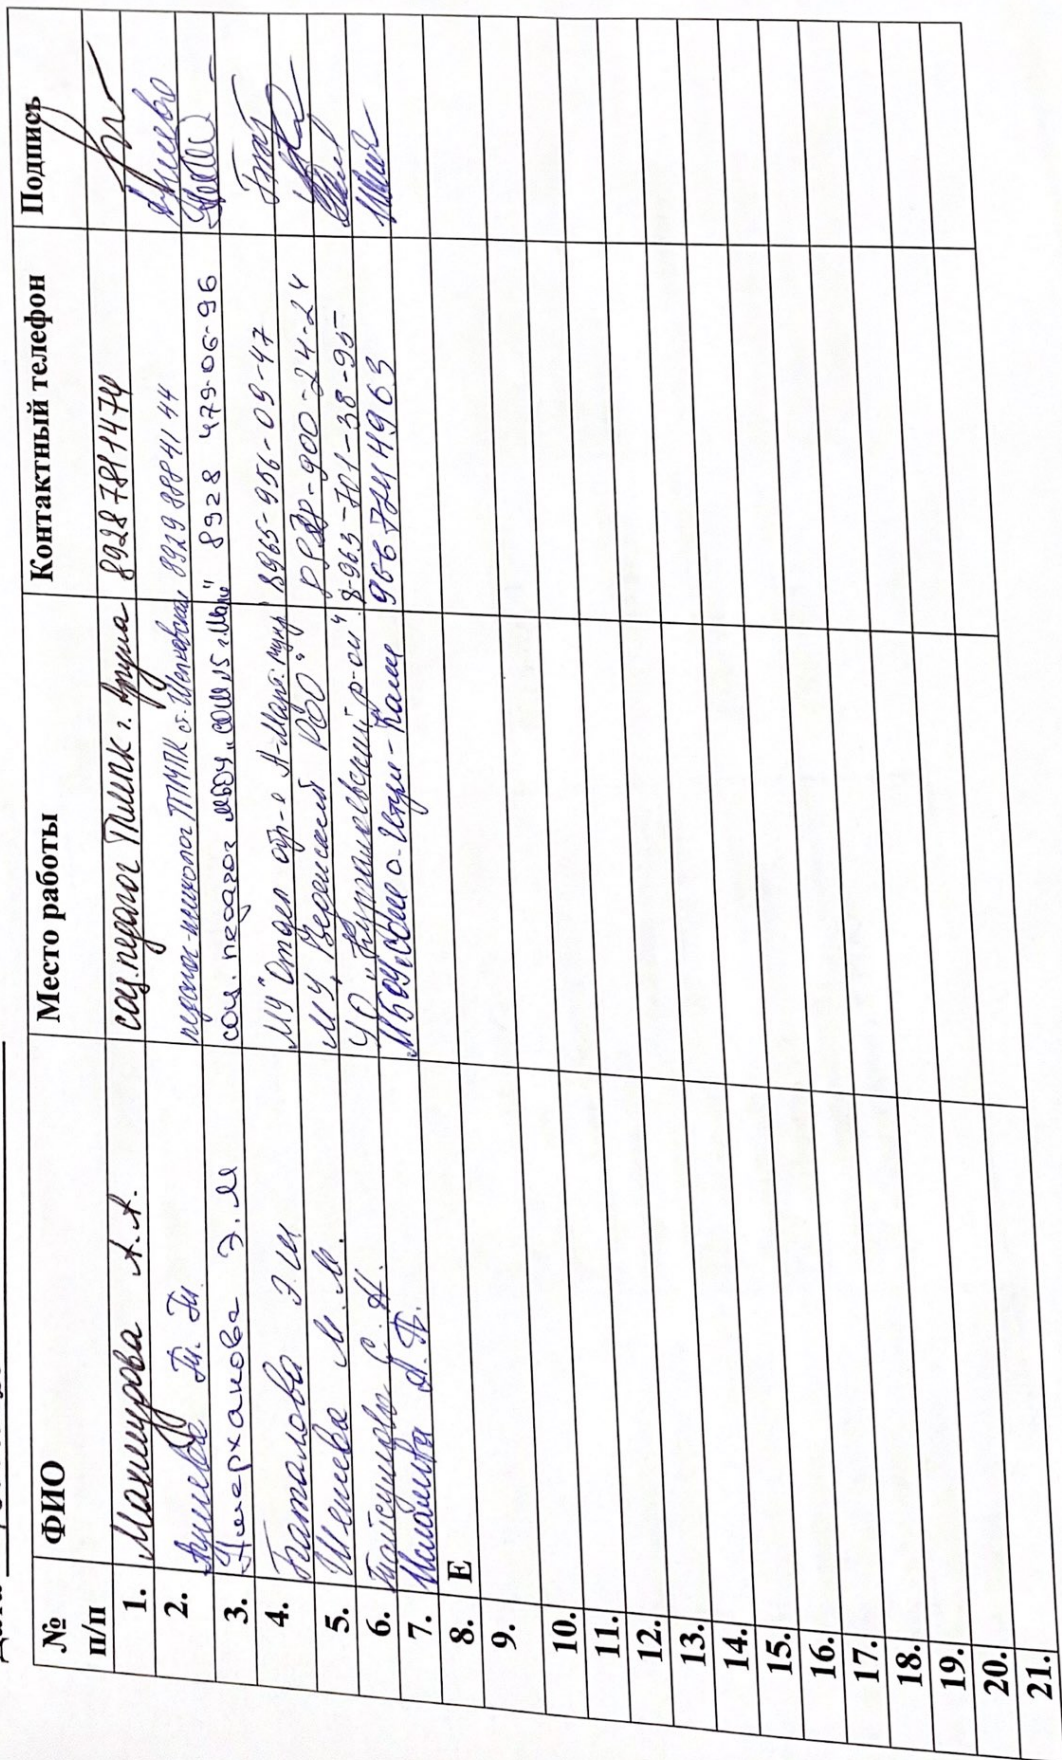 Дата
№ п/п ФИО Место работы Контактный телефон Подпись
1. А.А. соц. педагог ПМПК г. Аргуна 89287811474
2. педагог-психолог ПМПК ст. Шелковская 89298884144
3. Умерханова Э.М соц. педагог МБОУ „СОШ №5 г. Шали" 8928 479-06-96
4. Баталова Э.Ш МУ "Отдел обр-я А-Март. 8965-956-09-47
5. Шешева М.М. МУ „Веденский РОО" 900-24-24
6. С.Н. УО „Курчалоевский р-он". 8-963-701-38-95
7. Исламова А.В. МБОУ „СОШ с. Итум-Кали 9667244963
8. Е
9.
10.
11.
12.
13.
14.
15.
16.
17.
18.
19.
20.
21.